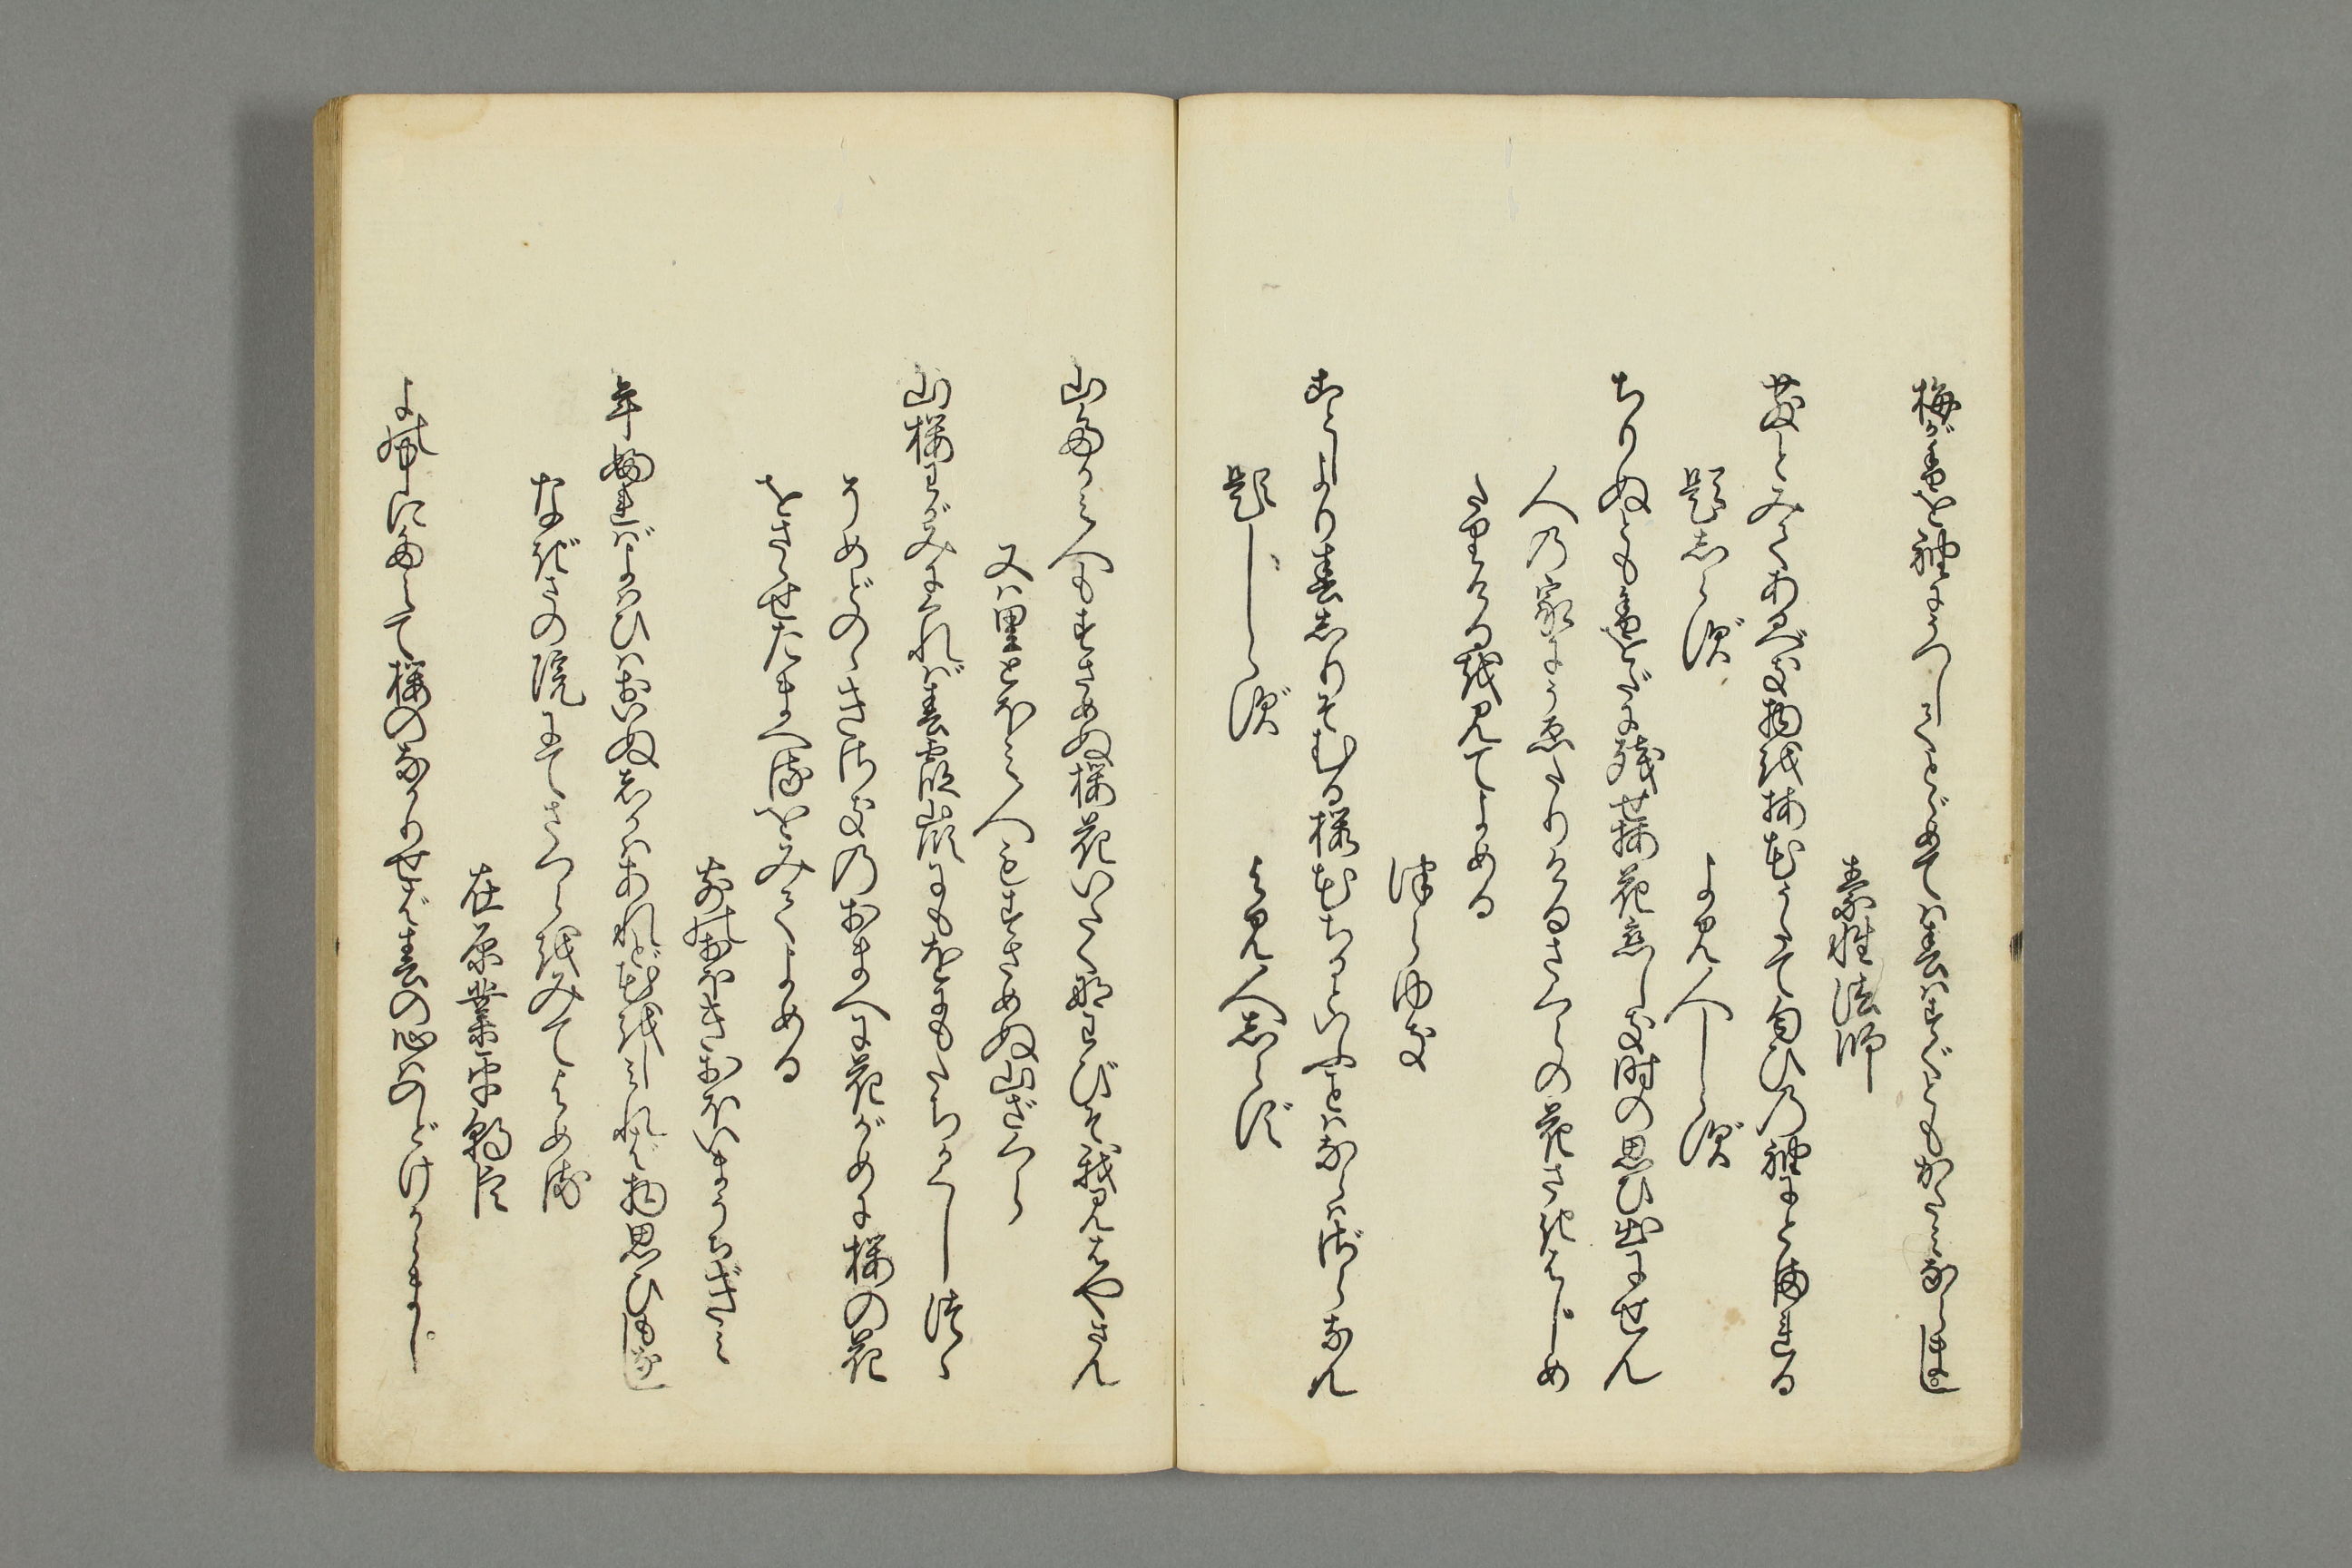 梅が香を袖にうつしてとゞめては春はすぐともかたみならまし
素性法師
散とみてあるべき物を梅花うたて匂ひの袖にとまれる
題しらず
よみ人しらず
ちりぬとも香をだに残せ梅花恋しき時の思ひ出にせん
人の家にうゑたりけるさくらの花さきはじめ
たりけるを見てよめる
つらゆき
ことしより春しりそむる桜花ちるといふことはならはざらなん
題しらず
よみ人しらず
山たかみ人もすさめぬ桜花いたくなわびそ我見はやさん
又は里とほみ人もすさめぬ山ざくら
山桜わがみにくれば春霞峯にもをにもたちかくしつゝ
そめどのゝきさきのおまへに花がめに桜の花
をさゝせたまへるをみてよめる
さきのおほきおほいまうちぎみ
年ふればよはひはおいぬしかはあれど花をしみれば物思ひもなし
なぎさの院にてさくらをみてよめる
在原業平朝臣
よの中にたえて桜のなかりせば春の心はのどけからまし